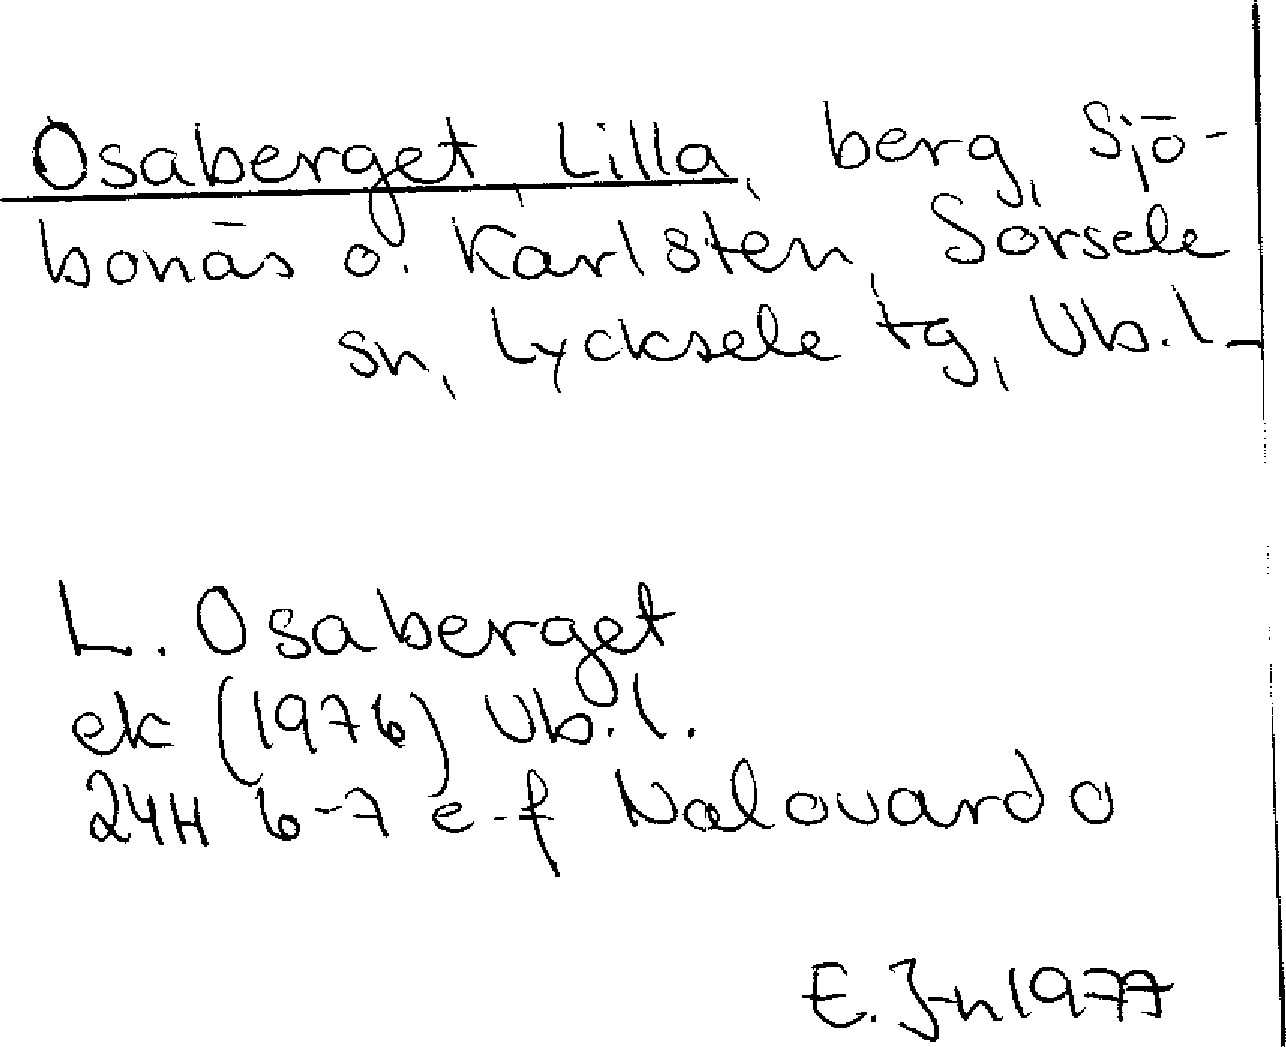 Osaberget, Lilla, berg, Sjö-
bonäs o. Karlsten, Sorsele
sn, Lycksele tg, Vb.l.
L. Osaberget
ek (1976) Vb.l.
24H 6-7 e-f Nalovardo
E. J-n 1977